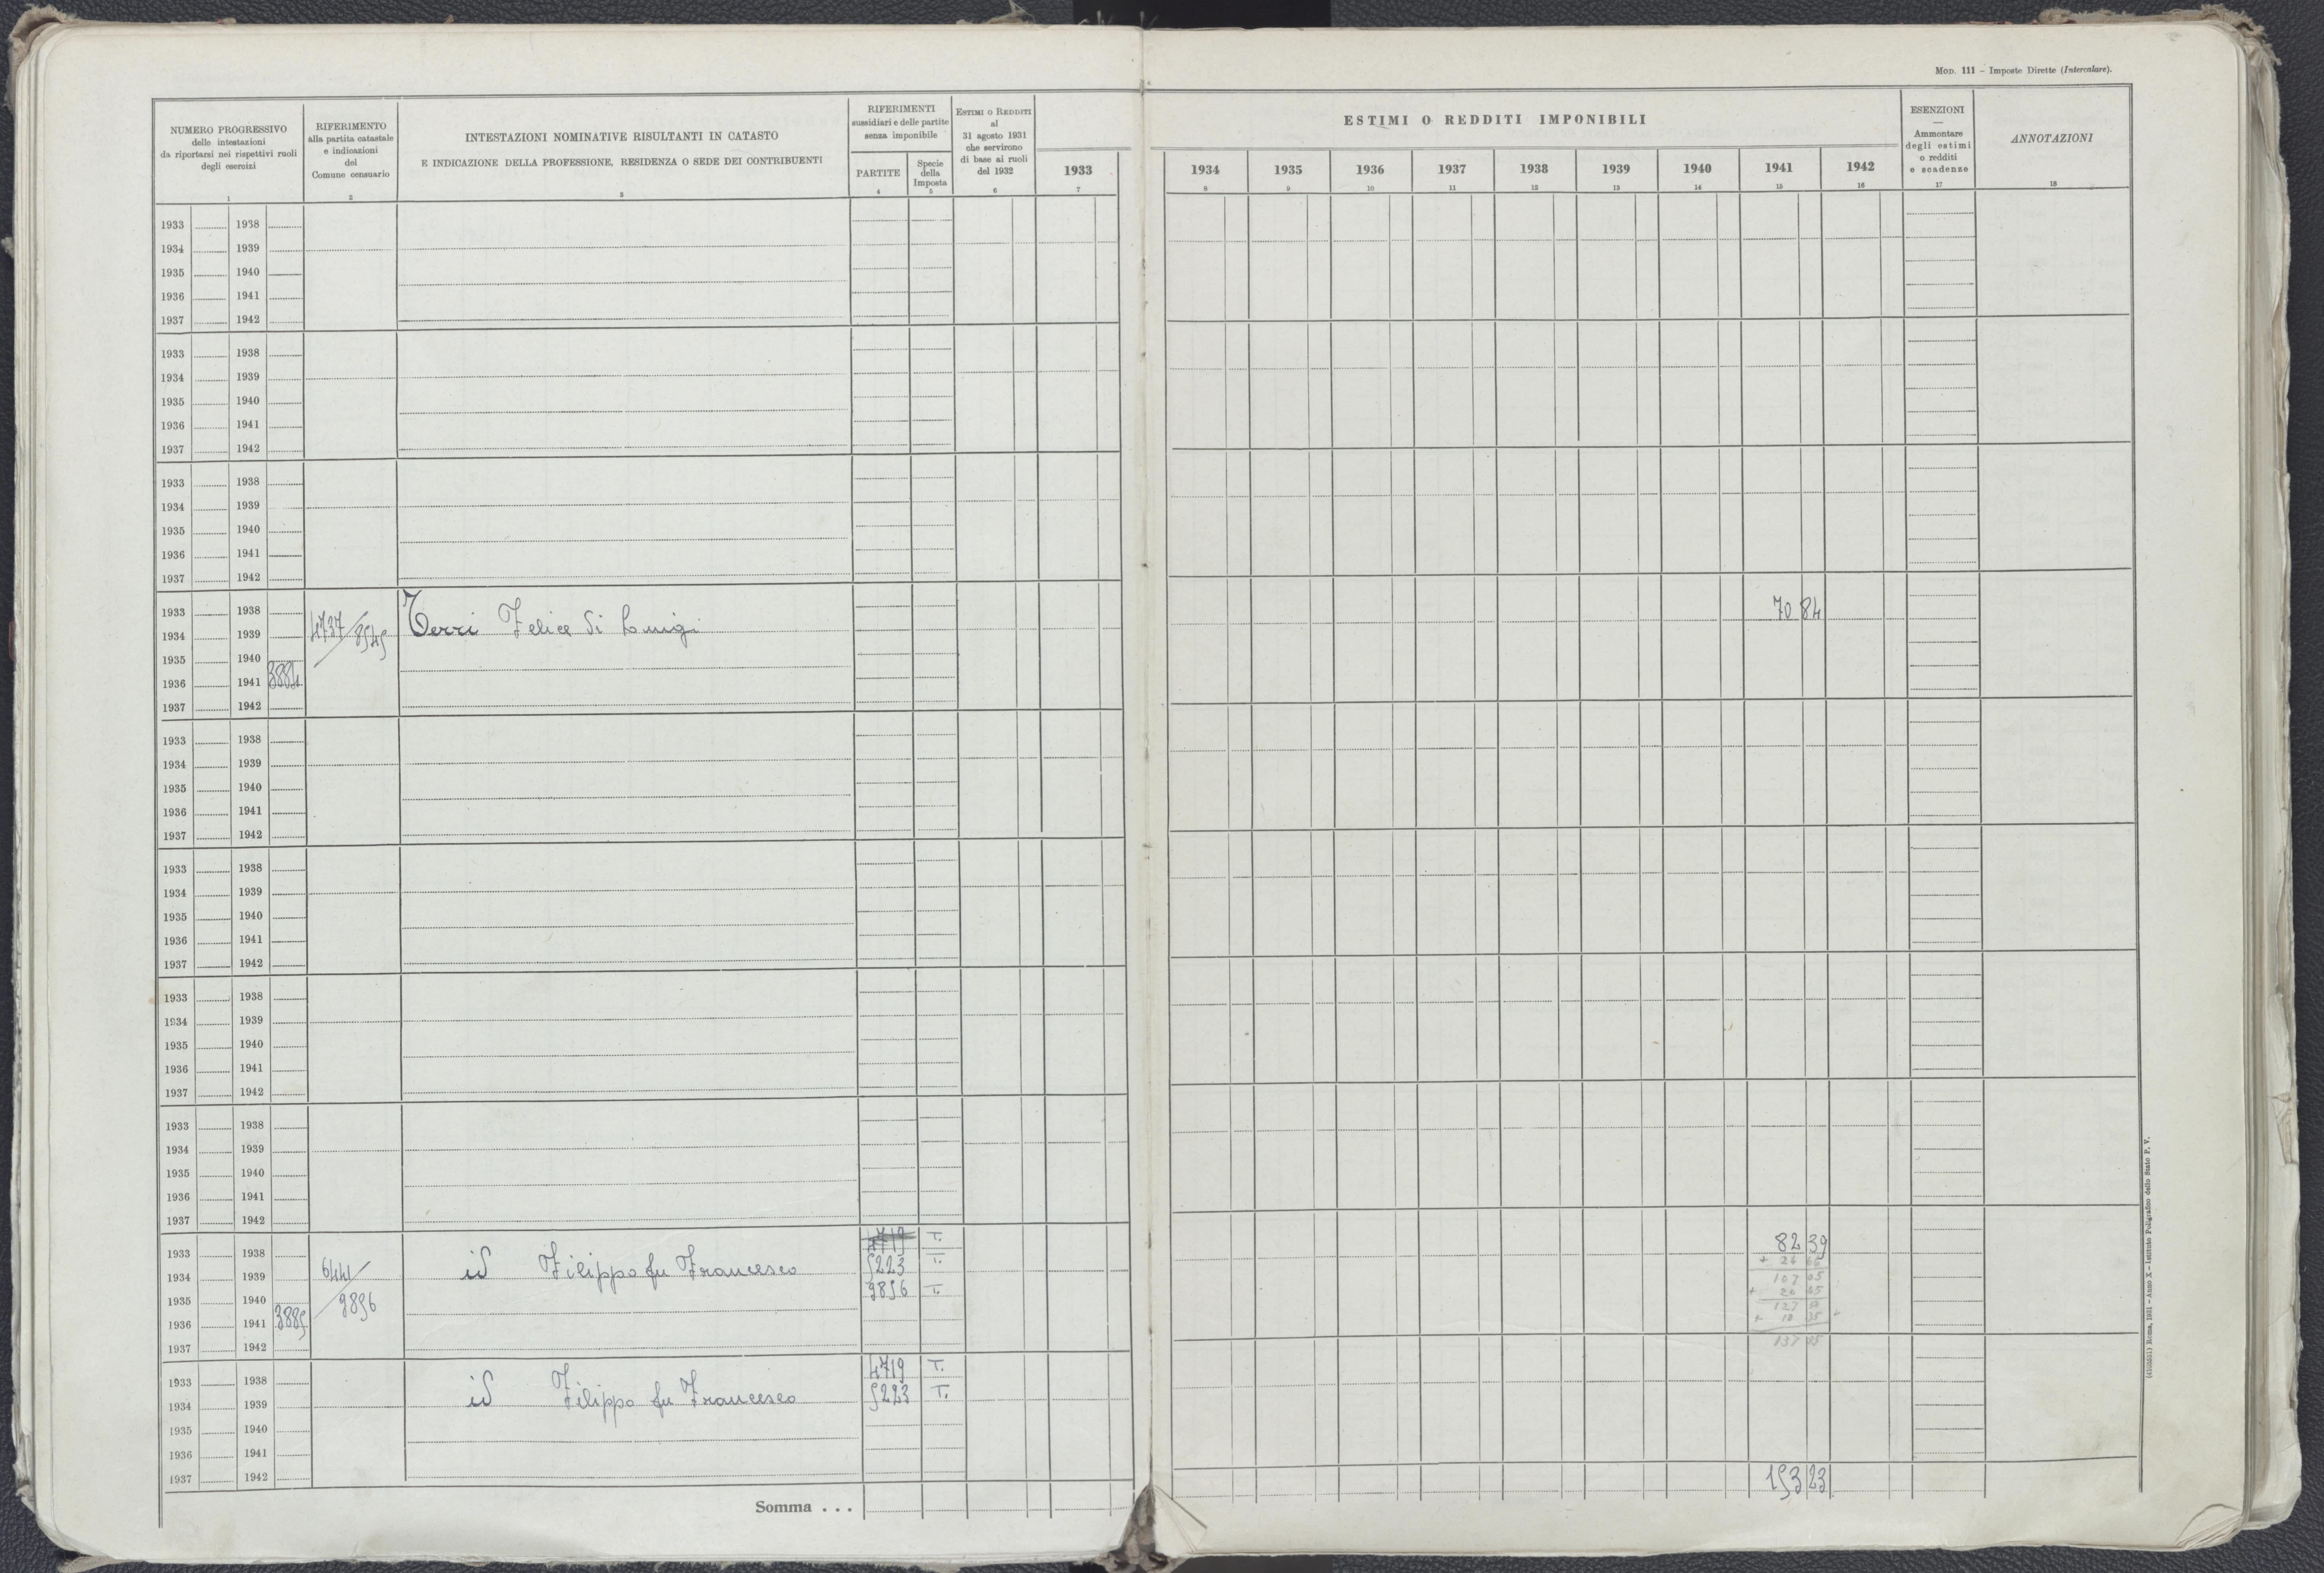 MOD. 111 – Imposte Dirette (Intercalare).
NUMERO PROGRESSIVO
delle intestazioni
da riportarsi nei rispettivi ruoli
degli esercizi
1
RIFERIMENTO
alla partita catastale
e indicazioni
del
Comune censuario
2
INTESTAZIONI NOMINATIVE RISULTANTI IN CATASTO
E INDICAZIONE DELLA PROFESSIONE, RESIDENZA O SEDE DEI CONTRIBUENTI
3
RIFERIMENTI
sussidiari e delle partite
senza imponibile
PARTITE
4
Specie
della
Imposta
5
ESTIMI O REDDITI
al
31 agosto 1931
che servirono
di base ai ruoli
del 1932
6
ESTIMI O REDDITI IMPONIBILI
1933 1934 1935 1936 1937 1938 1939 1940 1941 1942
7 8 9 10 11 12 13 14 15 16
ESENZIONI
—
Ammontare
degli estimi
o redditi
e scadenze
17
ANNOTAZIONI
18
1933 1938
1934 1939
1935 1940
1936 1941
1937 1942
1933 1938
1934 1939
1935 1940
1936 1941
1937 1942
1933 1938
1934 1939
1935 1940
1936 1941
1937 1942
1933 1938
1934 1939 4737/8545 Terri Felice di Luigi 70 84
1935 1940
1936 1941 3884
1937 1942
1933 1938
1934 1939
1935 1940
1936 1941
1937 1942
1933 1938
1934 1939
1935 1940
1936 1941
1937 1942
1933 1938
1934 1939
1935 1940
1936 1941
1937 1942
1933 1938
1934 1939
1935 1940
1936 1941
1937 1942
1933 1938 4719 T. 82 39
1934 1939 6441/9856 id Filippo fu Francesco 5223 T. + 24 66
1935 1940 9856 T. 107 05
+ 20 45
1936 1941 3885 127 50
+ 10 35
1937 1942 137 85
1933 1938 4719 T.
1934 1939 id Filippo fu Francesco 5223 T.
1935 1940
1936 1941
1937 1942
Somma . . . 153 23
(4103031) Roma, 1931 - Anno X - Istituto Poligrafico dello Stato P. V.